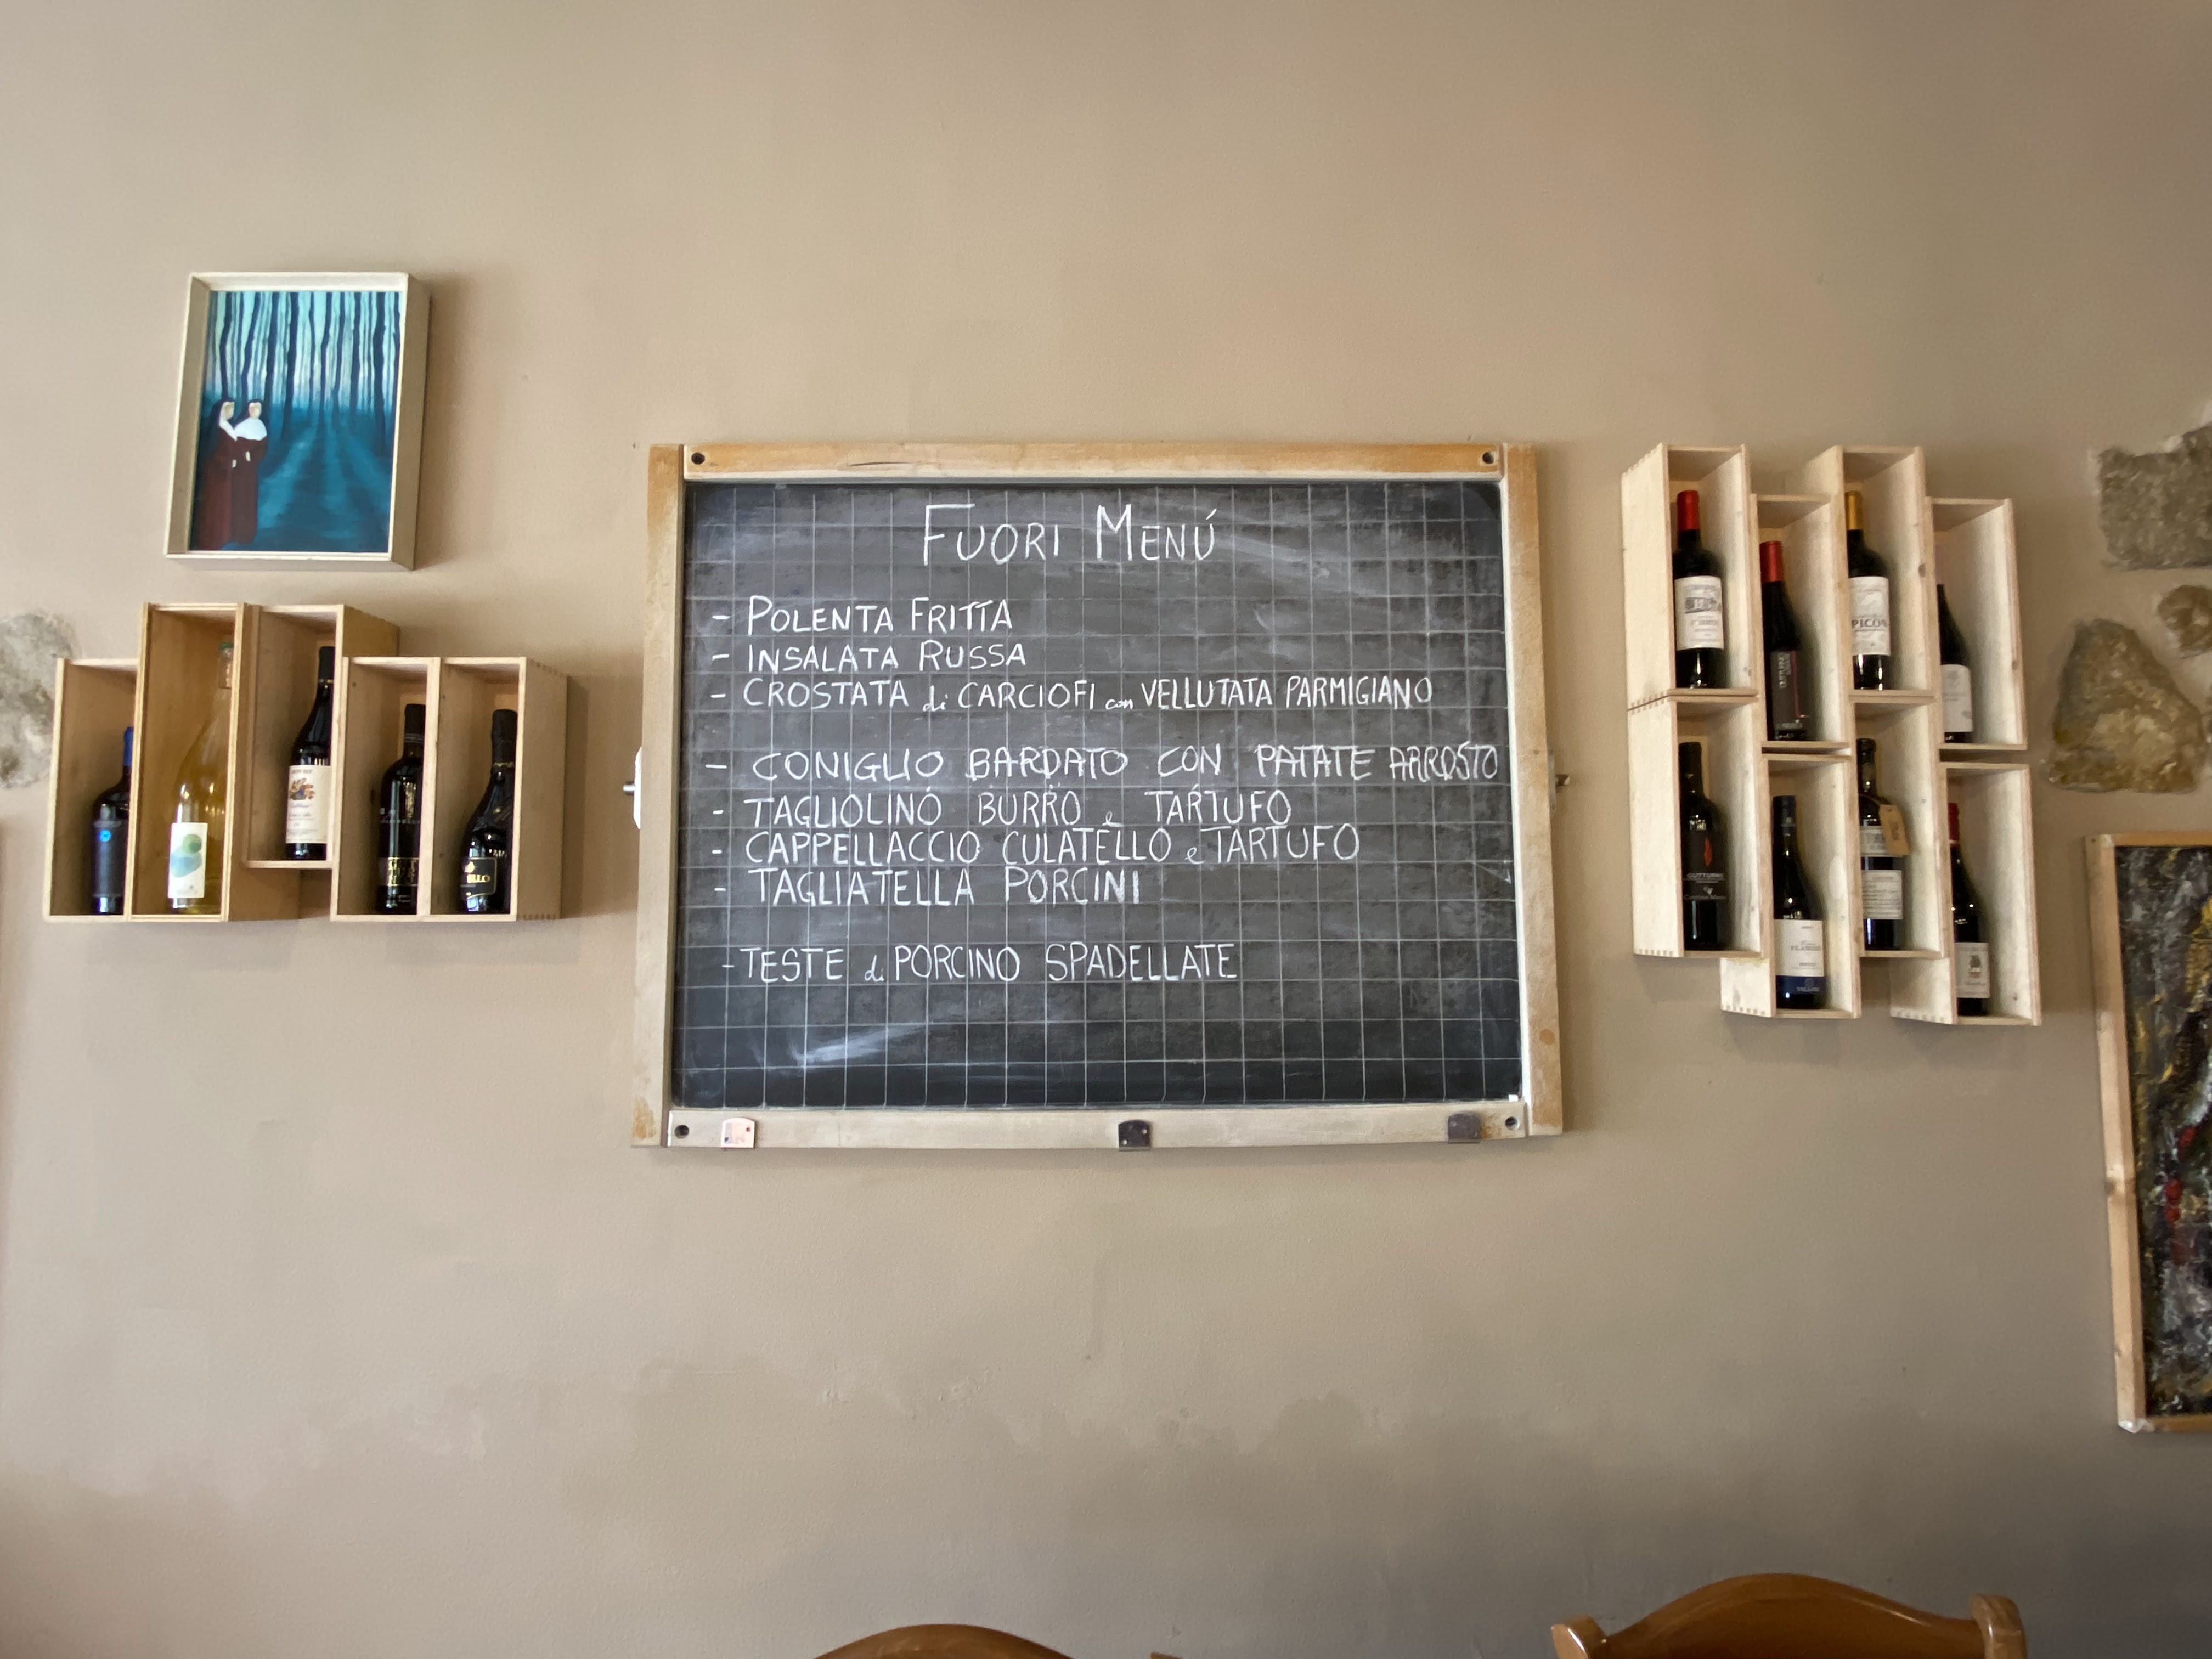 FUORI MENÚ
- POLENTA FRITTA
- INSALATA RUSSA
- CROSTATA di CARCIOFI con VELLUTATA PARMIGIANO
- CONIGLIO BARDATO CON PATATE ARROSTO
- TAGLIOLINO BURRO e TARTUFO
- CAPPELLACCIO CULATELLO e TARTUFO
- TAGLIATELLA PORCINI
- TESTE di PORCINO SPADELLATE
PICON
GUTTURNIO